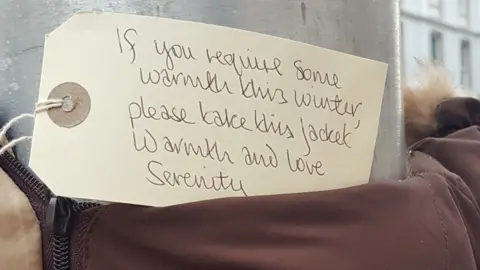 If you require some
warmth this winter,
please take this jacket
warmth and love
Serenity